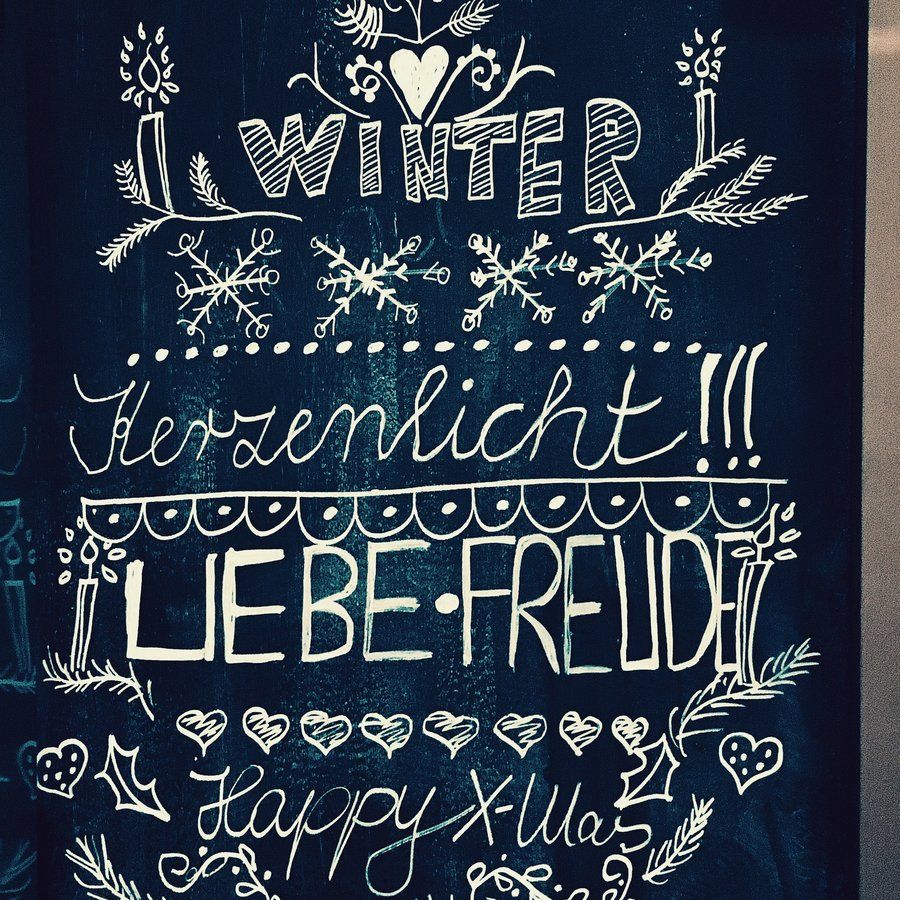 WINTER
Kerzenlicht!!!
LIEBE•FREUDE
Happy X-Mas